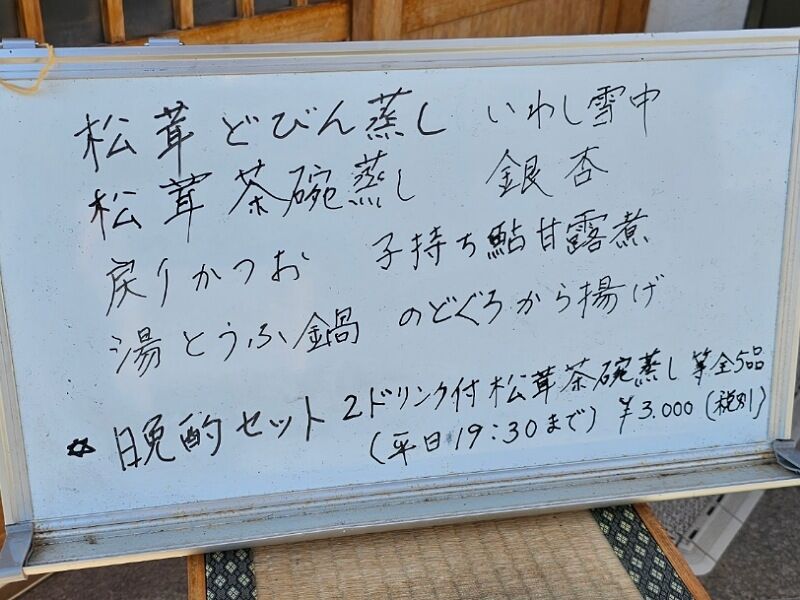 松茸どびん蒸し いわし雪中
松茸茶碗蒸し 銀杏
戻りかつお 子持ち鮎甘露煮
湯とうふ鍋 のどぐろから揚げ
☆ 晩酌セット 2ドリンク付 松茸茶碗蒸し 等全5品
(平日19:30まで) ¥3.000 (税別)